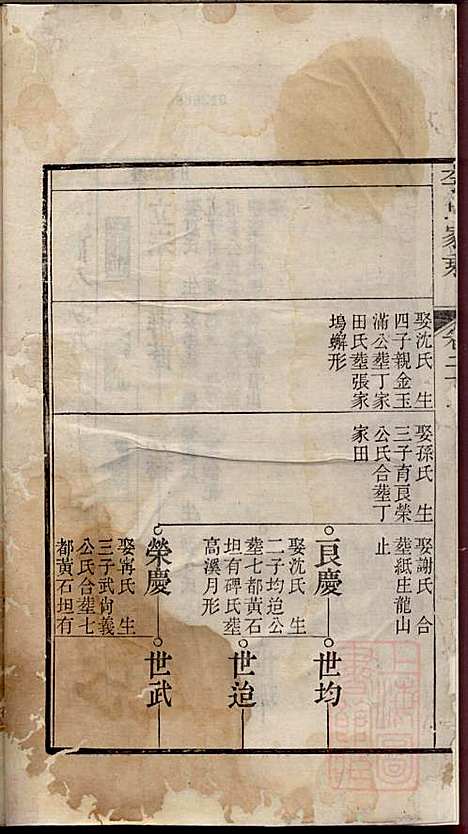 娶沈氏 生
四子親金玉
滿公塟丁家
田氏塟張家
塢蠏形
娶孫氏 生
三子育良榮
公氏合塟丁
家田
娶謝氏 合
塟紙庄龍山
止
良慶
世均
娶沈氏 生
二子均迨公
塟七都黃石
坦有碑氏塟
高溪月形
世迨
榮慶
世武
娶甯氏 生
三子武尚義
公氏合塟七
都黃石坦有